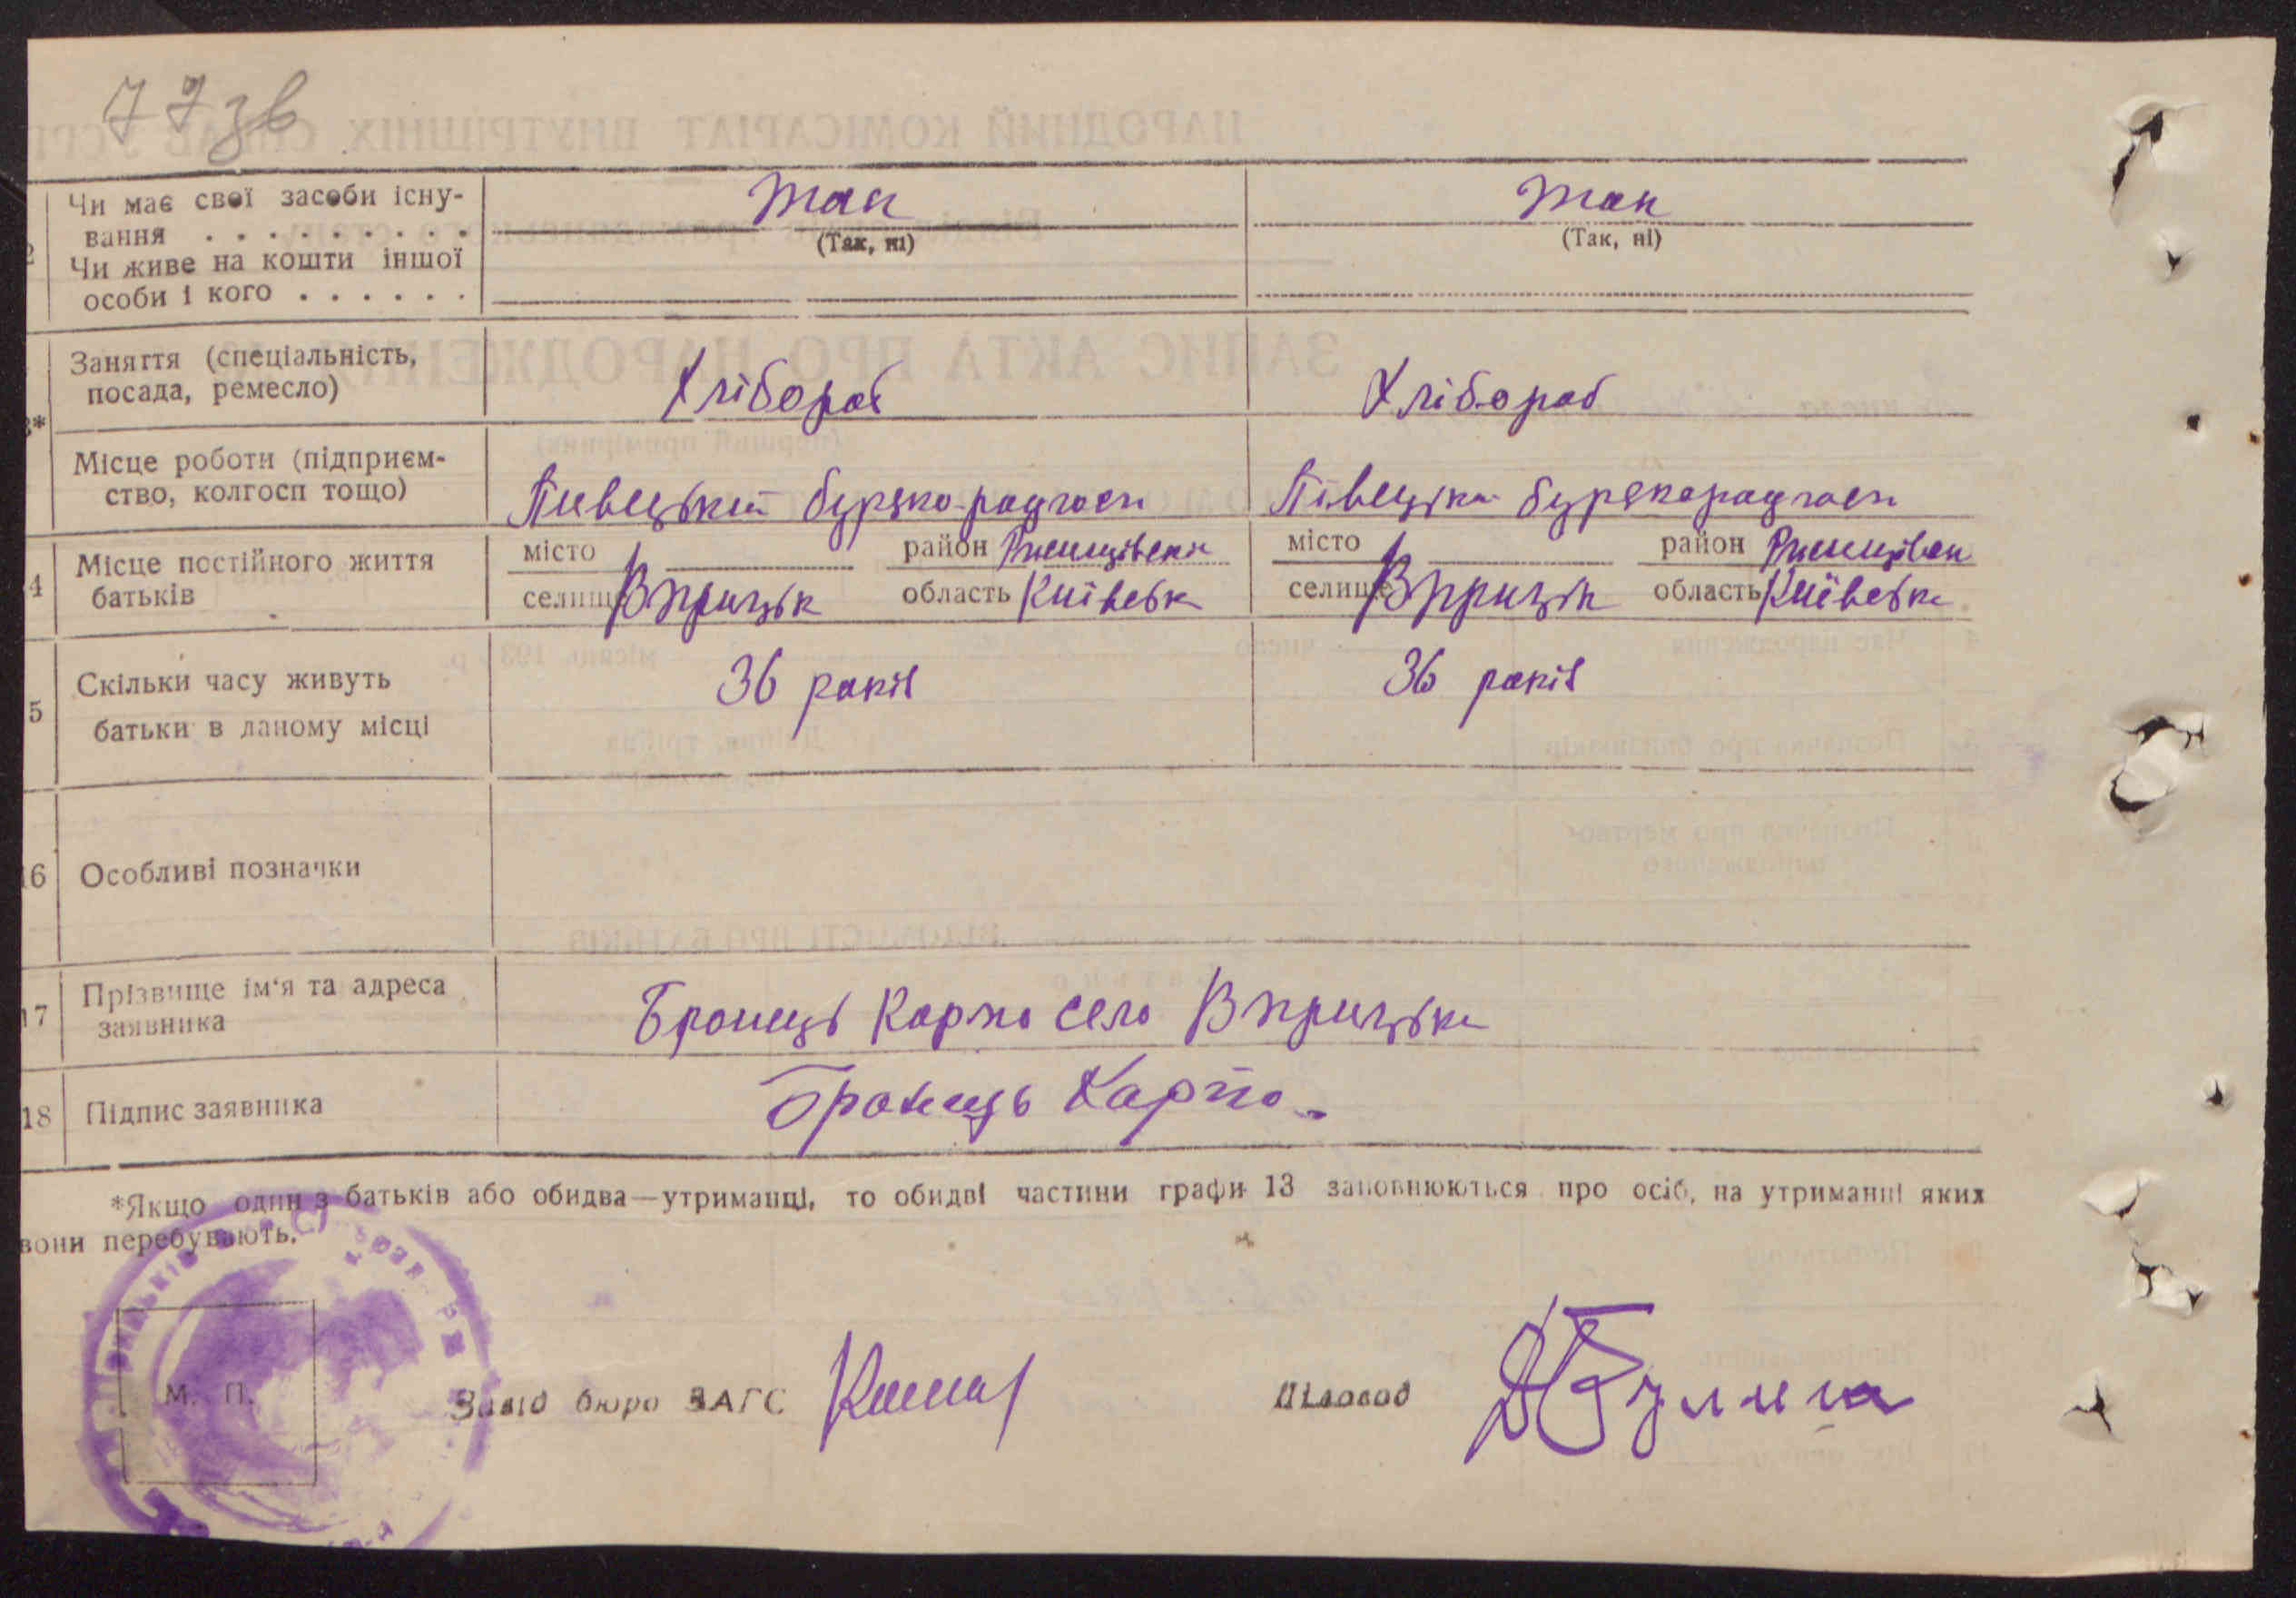 77 зв
Чи має свої засоби існу- Так Так
вання . . . . . . . . . (Так, ні) (Так, ні)
Чи живе на кошти іншої
особи і кого . . . . . .
Заняття (спеціальність, Хлібороб Хлібороб
посада, ремесло)
3*
Місце роботи (підприєм-
ство, колгосп тощо) бурякорадгосп бурякорадгосп
4 Місце постійного життя місто район місто район
батьків селище область Київськ селище область Київськ
5 Скільки часу живуть 36 років 36 років
батьки в даному місці
16 Особливі позначки
17 Прізвище ім'я та адреса
заявника Бронець Карпо село
18 Підпис заявника Бронець Карпо.
*Якщо один з батьків або обидва—утриманці, то обидві частини графи 13 заповнюються про осіб, на утриманні яких
вони перебувають.
М. П.
Завід бюро ЗАГС Діловод